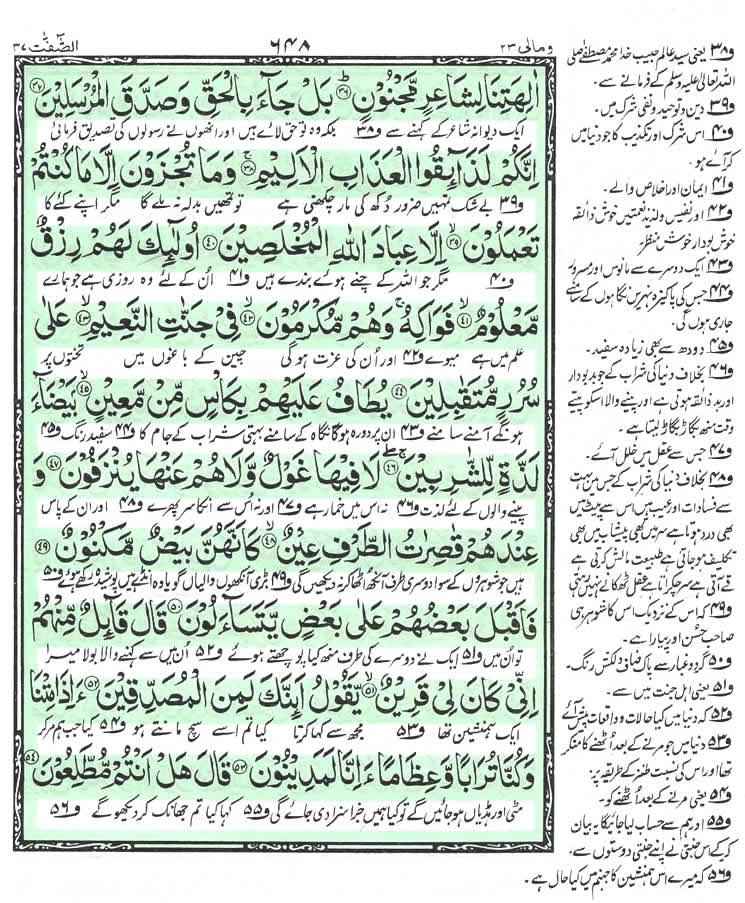 الصّٰفّٰت ٣٧
٦٤٨
ومالی ٢٣
اٰلِهَتِنَا لِشَاعِرٍ مَّجْنُوْنٍؕ﴿۳۶﴾ بَلْ جَآءَ بِالْحَقِّ وَصَدَّقَ الْمُرْسَلِيْنَ﴿۳۷﴾
ایک دیوانہ شاعر کے کہنے سے و۳۸ بلکہ وہ تو حق لائے ہیں اور انھوں نے رسولوں کی تصدیق فرمائی
اِنَّكُمْ لَذَآئِقُوا الْعَذَابِ الْاَلِيْمِۚ﴿۳۸﴾ وَمَا تُجْزَوْنَ اِلَّا مَا كُنْتُمْ
و۳۹ بے شک تمہیں ضرور دُکھ کی مار چکھنی ہے تو تمھیں بدلہ نہ ملے گا مگر اپنے کئے کا
تَعْمَلُوْنَۙ﴿۳۹﴾ اِلَّا عِبَادَ اللّٰهِ الْمُخْلَصِيْنَ﴿۴۰﴾ اُولٰٓئِكَ لَهُمْ رِزْقٌ
و۴۰ مگر جو اللہ کے چنے ہوئے بندے ہیں و۴۱ اُن کے لئے وہ روزی ہے جو ہمارے
مَّعْلُوْمٌۙ﴿۴۱﴾ فَوَاكِهُۚ وَهُمْ مُّكْرَمُوْنَۙ﴿۴۲﴾ فِيْ جَنّٰتِ النَّعِيْمِۙ﴿۴۳﴾ عَلٰى
علم میں ہے میوے و۴۲ اور اُن کی عزت ہو گی چین کے باغوں میں تختوں پر
سُرُرٍ مُّتَقٰبِلِيْنَ﴿۴۴﴾ يُطَافُ عَلَيْهِمْ بِكَاْسٍ مِّنْ مَّعِيْنٍۙ﴿۴۵﴾ بَيْضَآءَ
ہونگے آمنے سامنے و۴۳ ان پر دورہ ہو گا نگاہ کے سامنے بہتی شراب کے جام کا و۴۴ سفید رنگ و۴۵
لَذَّةٍ لِّلشّٰرِبِيْنَۚ﴿۴۶﴾ لَا فِيْهَا غَوْلٌ وَّلَا هُمْ عَنْهَا يُنْزَفُوْنَ﴿۴۷﴾ وَ
پینے والوں کے لئے لذت و۴۶ نہ اس میں خمار ہے و۴۷ اور نہ اُس سے انکا سر پھرے و۴۸ اور ان کے پاس
عِنْدَهُمْ قٰصِرٰتُ الطَّرْفِ عِيْنٌۙ﴿۴۸﴾ كَاَنَّهُنَّ بَيْضٌ مَّكْنُوْنٌ﴿۴۹﴾
ہیں جو شوہروں کے سوا دوسری طرف آنکھ اٹھا کر نہ دیکھیں گی و۴۹ بڑی آنکھوں والیاں گویا وہ انڈے ہیں پوشیدہ رکھے ہوئے و۵۰
فَاَقْبَلَ بَعْضُهُمْ عَلٰى بَعْضٍ يَّتَسَآءَلُوْنَ﴿۵۰﴾ قَالَ قَآئِلٌ مِّنْهُمْ
تو اُن میں و۵۱ ایک نے دوسرے کی طرف منھ کیا پوچھتے ہوئے و۵۲ اُن میں سے کہنے والا بولا میرا
اِنِّيْ كَانَ لِيْ قَرِيْنٌۙ﴿۵۱﴾ يَّقُوْلُ اَئِنَّكَ لَمِنَ الْمُصَدِّقِيْنَ﴿۵۲﴾ ءَاِذَا مِتْنَا
ایک ہمنشین تھا و۵۳ مجھ سے کہا کرتا کیا تم اسے سچ مانتے ہو و۵۴ کیا جب ہم مر کر
وَكُنَّا تُرَابًا وَّعِظَامًا ءَاِنَّا لَمَدِيْنُوْنَ﴿۵۳﴾ قَالَ هَلْ اَنْتُمْ مُّطَّلِعُوْنَ﴿۵۴﴾
مٹی اور ہڈیاں ہو جائیں گے تو کیا ہمیں جزا سزا دی جائے گی و۵۵ کہا کیا تم جھانک کر دیکھو گے و۵۶
و۳۸ یعنی سیدِ عالم حبیب خدا محمد مصطفےٰ صلی
اللہ تعالیٰ علیہ وسلم کے فرمانے سے۔
و۳۹ دین و توحید و نفی شرک میں۔
و۴۰ اس شرک اور تکذیب کا جو دنیا میں
کر آئے ہو۔
و۴۱ ایمان اور اخلاص والے۔
و۴۲ اور نفیس و لذیذ نعمتیں خوش ذائقہ
خوش بودار خوش منظر۔
و۴۳ ایک دوسرے سے مانوس اور مسرور
و۴۴ جس کی پاکیزہ نہریں نگاہوں کے سامنے
جاری ہوں گی۔
و۴۵ دودھ سے بھی زیادہ سفید۔
و۴۶ بخلاف دنیا کی شراب کے جو بدبودار
اور بد ذائقہ ہوتی ہے اور پینے والا اسکو پیتے
وقت منھ بگاڑ بگاڑ لیتا ہے۔
و۴۷ جس سے عقل میں خلل آئے۔
و۴۸ بخلاف دنیا کی شراب کے جس میں بہت
سے فسادات اور عیب ہیں اس سے پیٹ میں
بھی درد ہوتا ہے سر میں بھی پیشاب میں بھی
تکلیف ہو جاتی ہے طبیعت مالش کرتی ہے
قے آتی ہے سر چکراتا ہے عقل ٹھکانے نہیں رہتی
و۴۹ کہ اس کے نزدیک اس کا شوہر ہی
صاحبِ حسن اور پیارا ہے۔
و۵۰ گرد و غبار سے پاک صاف دلکش رنگ۔
و۵۱ یعنی اہلِ جنت میں سے۔
و۵۲ کہ دنیا میں کیا حالات و واقعات پیش آئے
و۵۳ دنیا میں جو مرنے کے بعد اُٹھنے کا منکر
تھا اور اس کی نسبت طنز کے طریقہ پر:
و۵۴ یعنی مرنے کے بعد اُٹھنے کو۔
و۵۵ اور ہم سے حساب لیا جائے گا یہ بیان
کر کے اس جنتی نے اپنے جنتی دوستوں سے۔
و۵۶ کہ میرے اس ہمنشین کا جہنم میں کیا حال ہے۔